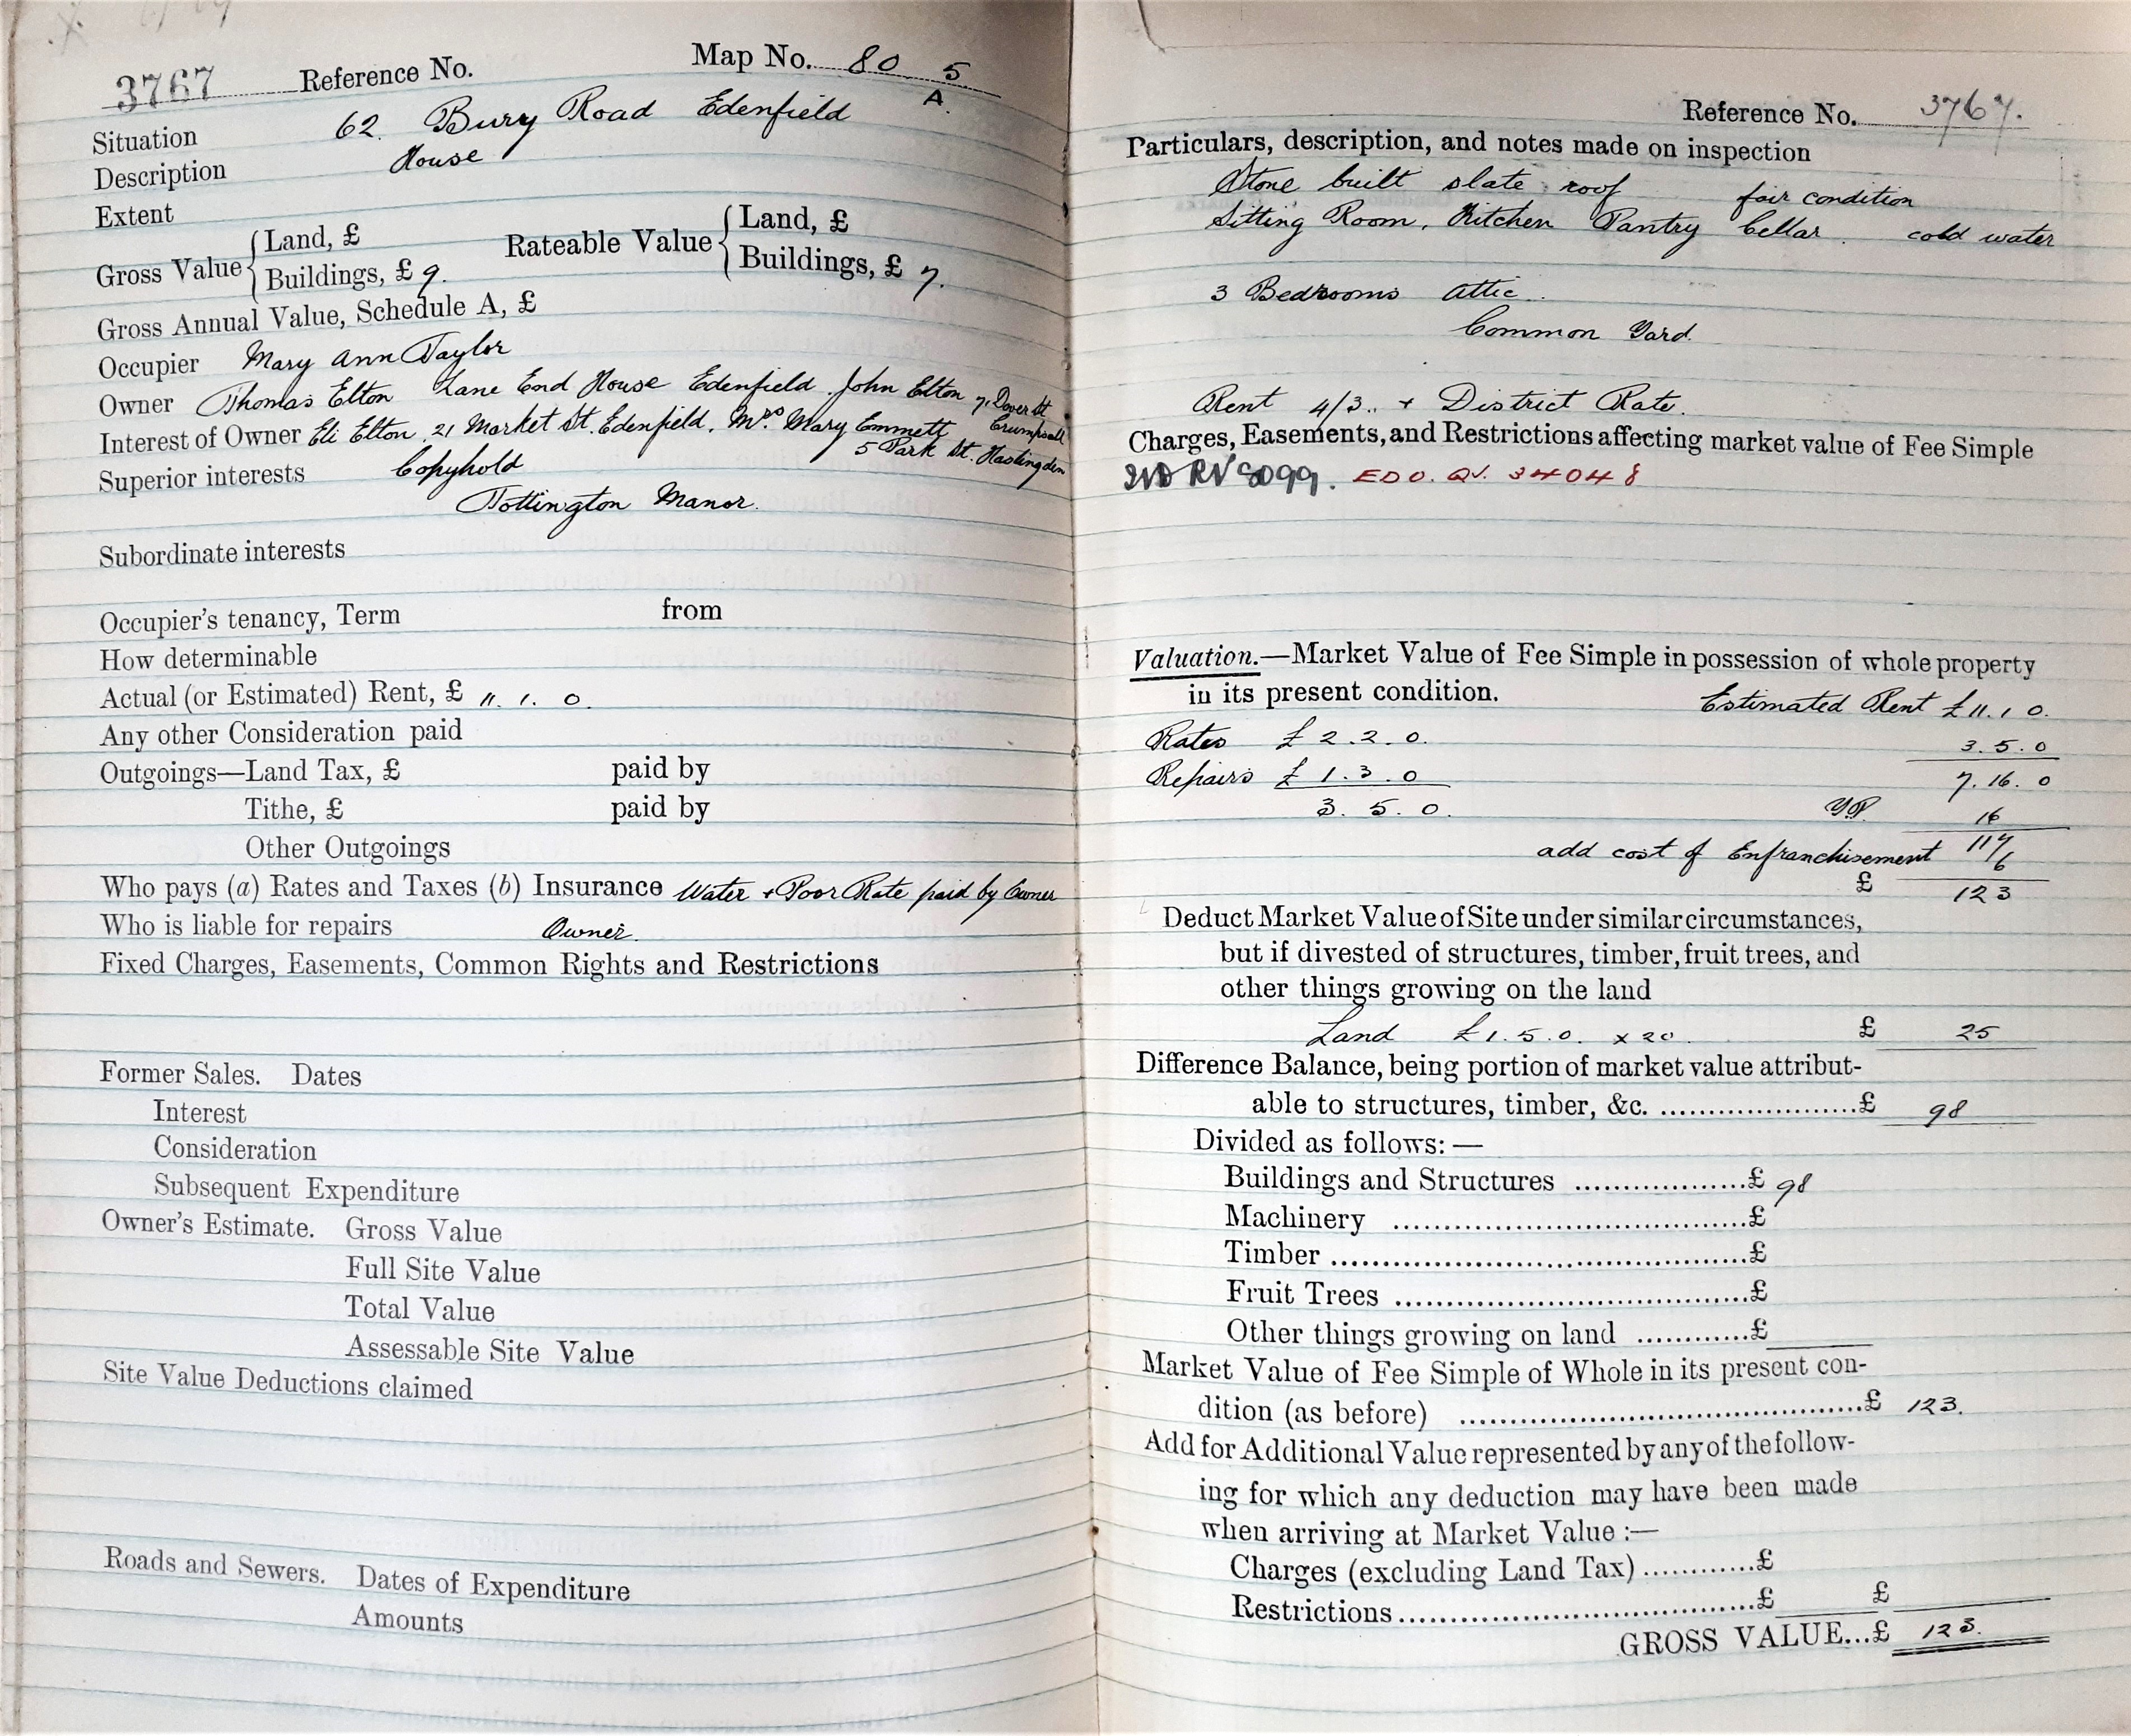 3767 Reference No. Map No. 80 5
A
Situation 62. Bury Road Edenfield
Description House
Extent
Gross Value { Land, £ Rateable Value { Land, £
Buildings, £ 9. Buildings, £ 7.
Gross Annual Value, Schedule A, £
Occupier Mary Ann Taylor
Owner Thomas Elton Lane End House Edenfield. John Elton 7, Dover St Crumpsall
Interest of Owner Eli Elton 21 Market St. Edenfield. Mrs Mary Emmett 5 Park St. Haslingden
Superior interests Copyhold
Tottington Manor.
Subordinate interests
Occupier's tenancy, Term from
How determinable
Actual (or Estimated) Rent, £ 11. 1. 0.
Any other Consideration paid
Outgoings—Land Tax, £ paid by
Tithe, £ paid by
Other Outgoings
Who pays (a) Rates and Taxes (b) Insurance Water + Poor Rate paid by Owner
Who is liable for repairs Owner.
Fixed Charges, Easements, Common Rights and Restrictions
Former Sales. Dates
Interest
Consideration
Subsequent Expenditure
Owner's Estimate. Gross Value
Full Site Value
Total Value
Assessable Site Value
Site Value Deductions claimed
Roads and Sewers. Dates of Expenditure
Amounts
Reference No. 3767.
Particulars, description, and notes made on inspection
Stone built slate roof fair condition
Sitting Room, Kitchen Pantry Cellar. cold water
3 Bedrooms Attic.
Common Yard.
Rent 4/3. + District Rate.
Charges, Easements, and Restrictions affecting market value of Fee Simple
EDO. QV. 34048
Valuation.—Market Value of Fee Simple in possession of whole property
in its present condition. Estimated Rent £11. 1 0.
Rates £ 2. 2. 0. 3. 5. 0
Repairs £ 1. 3. 0 7. 16. 0
3. 5. 0. YP. 16
add cost of Enfranchisement 117
6
£ 123
Deduct Market Value of Site under similar circumstances,
but if divested of structures, timber, fruit trees, and
other things growing on the land
Land £1. 5. 0. x 20. £ 25
Difference Balance, being portion of market value attribut-
able to structures, timber, &c. .....................£ 98
Divided as follows: —
Buildings and Structures ..................£ 98
Machinery ....................................£
Timber ...........................................£
Fruit Trees .....................................£
Other things growing on land ............£
Market Value of Fee Simple of Whole in its present con-
dition (as before) ...........................................£ 123.
Add for Additional Value represented by any of the follow-
ing for which any deduction may have been made
when arriving at Market Value :—
Charges (excluding Land Tax) ............£
Restrictions......................................£ £
GROSS VALUE...£ 123.